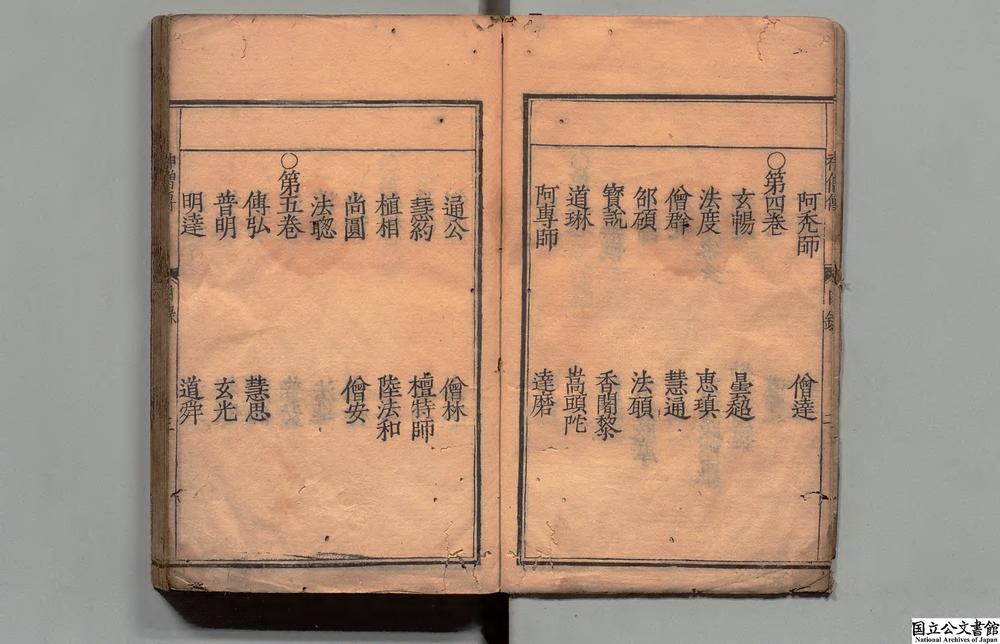 阿禿師 僧達
○第四卷
玄暢 曇超
法度 惠瑱
僧群 慧通
邵碩 法願
寶誌 香闍黎
道琳 嵩頭陀
阿專師 達磨
通公 僧林
慧約 檀特師
植相 陸法和
尚圓 僧安
法聰
○第五卷
傳弘 慧思
普明 玄光
明達 道舜
国立公文書館
National Archives of Japan